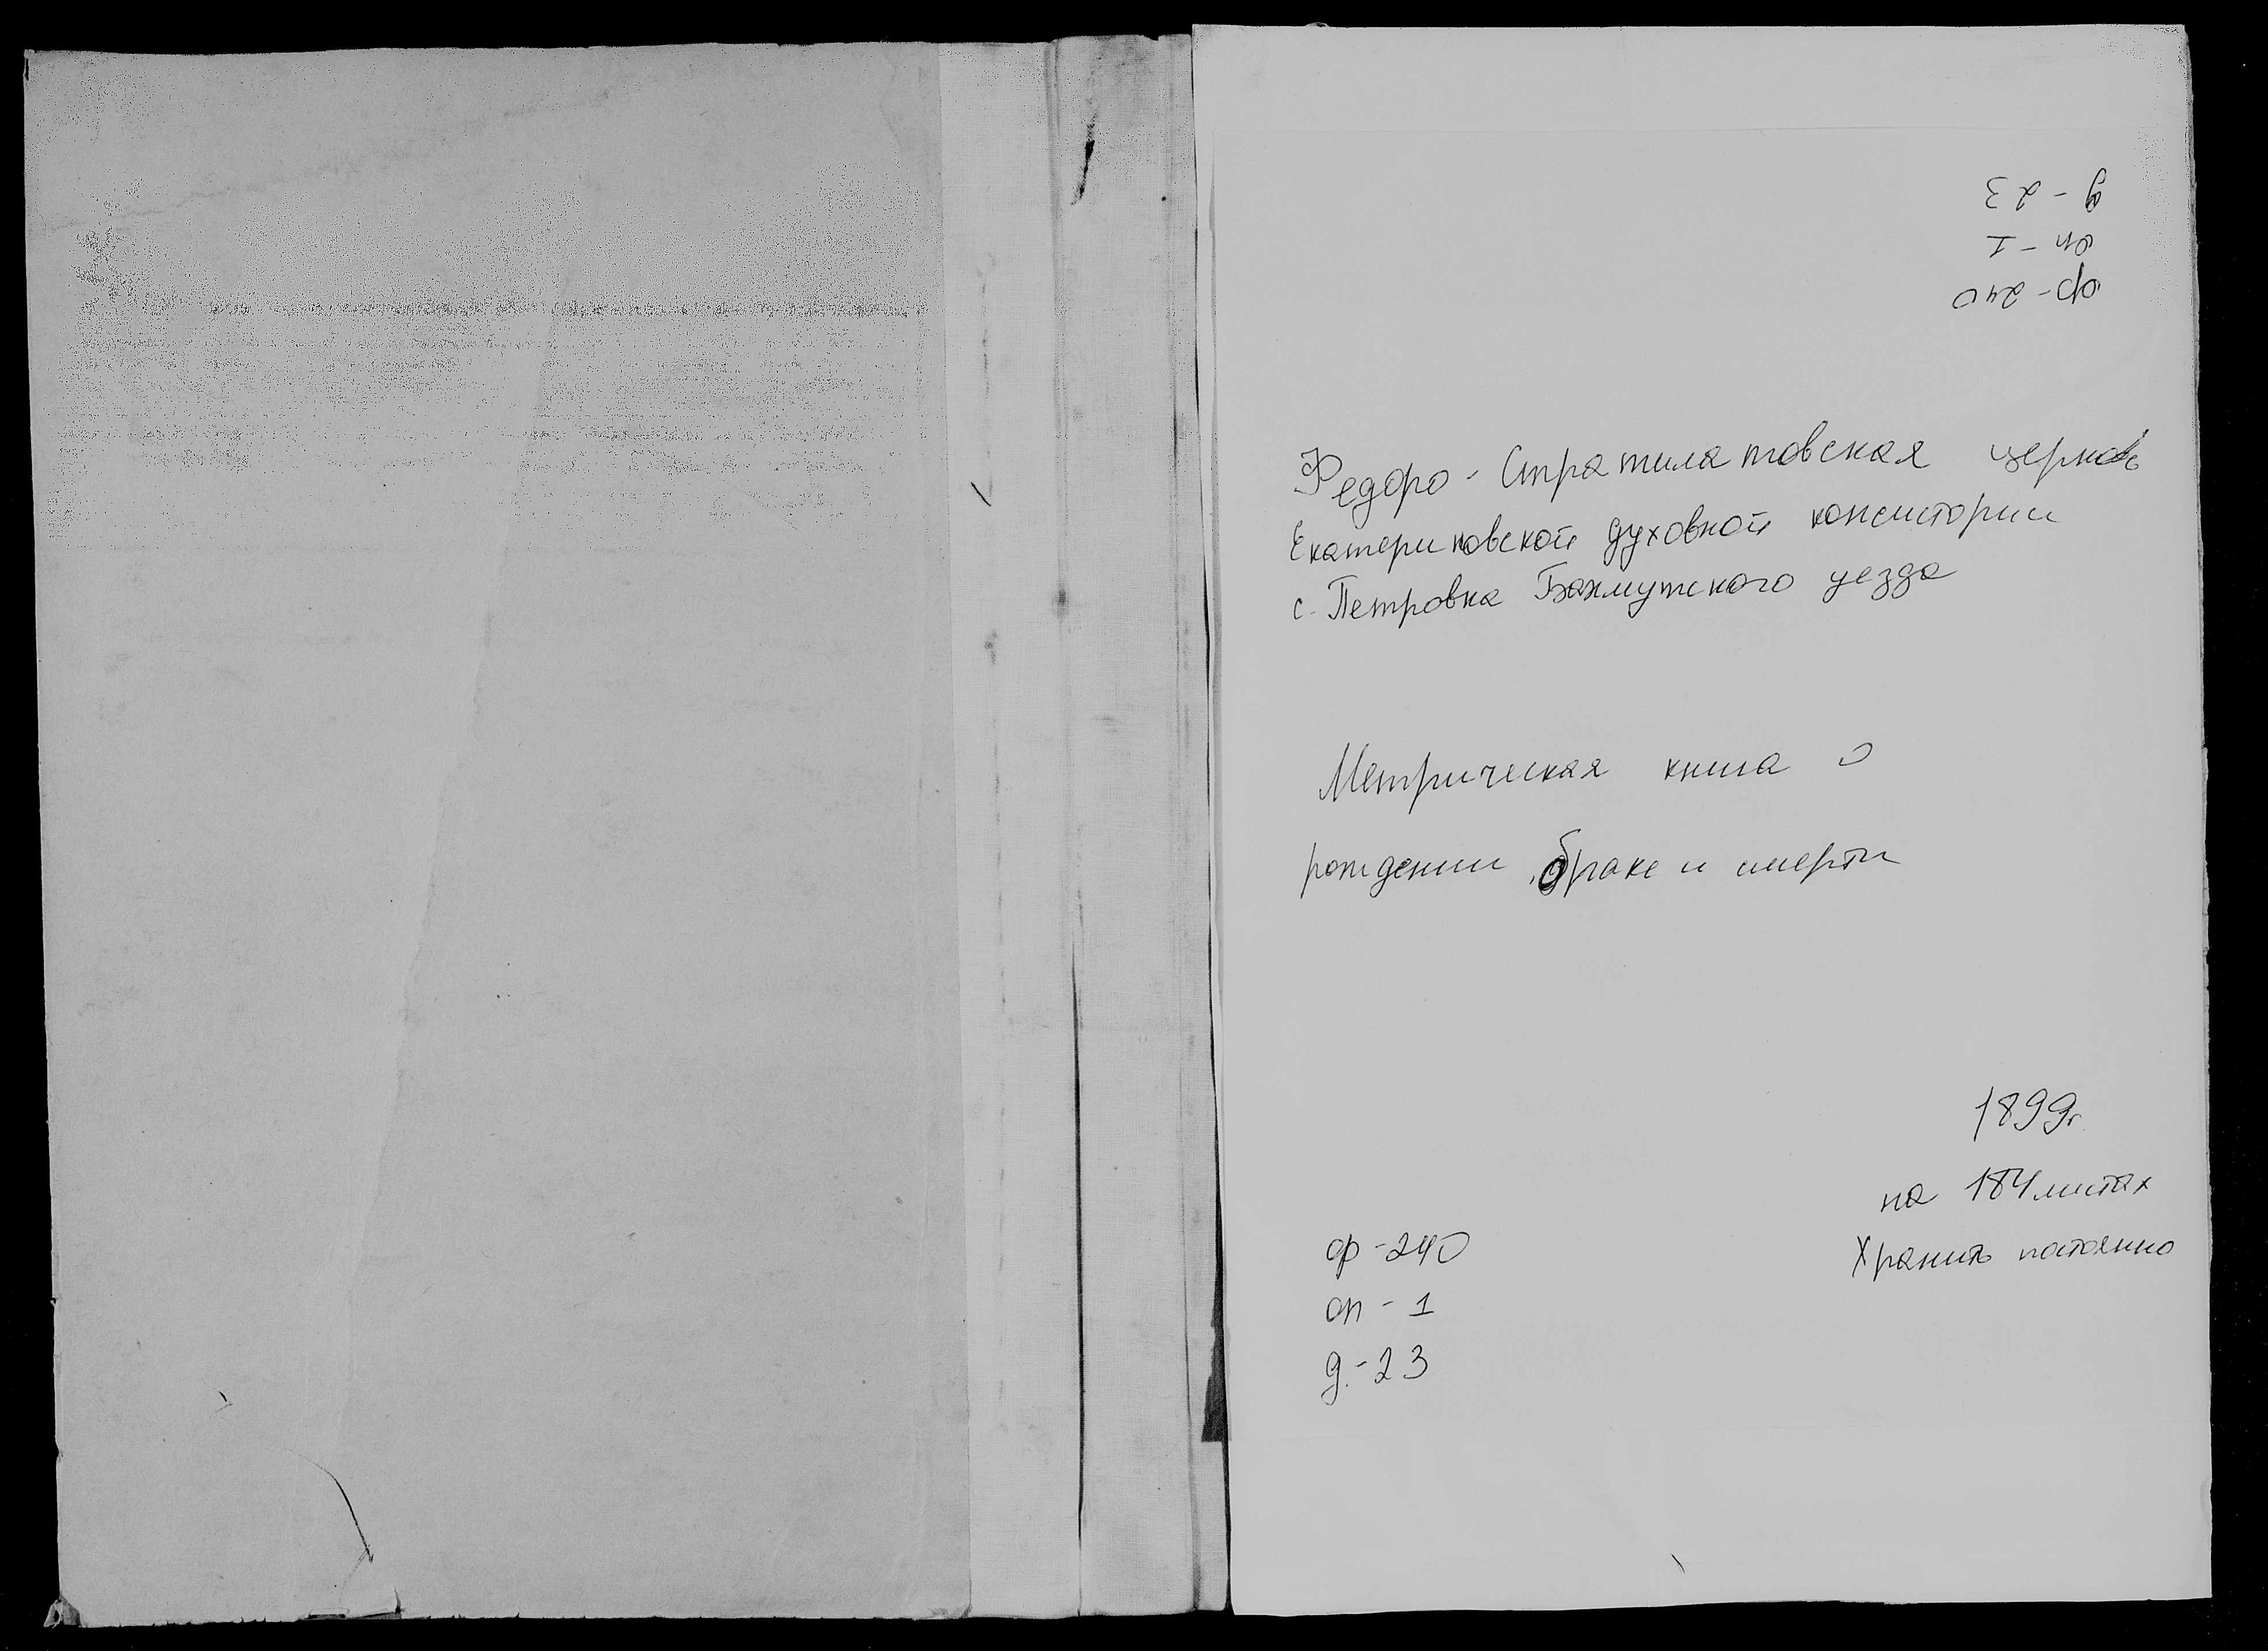 д - 23
оп - I
ф - 240
Федоро - Стратилатовская церковь
Екатериновской духовной консистории
с. Петровка Бахмутского уезда
Метрическая книга о
рождении, браке и смерти
1899г.
на 184 листах
Хранить постоянно
ф - 240
оп - 1
д. - 23